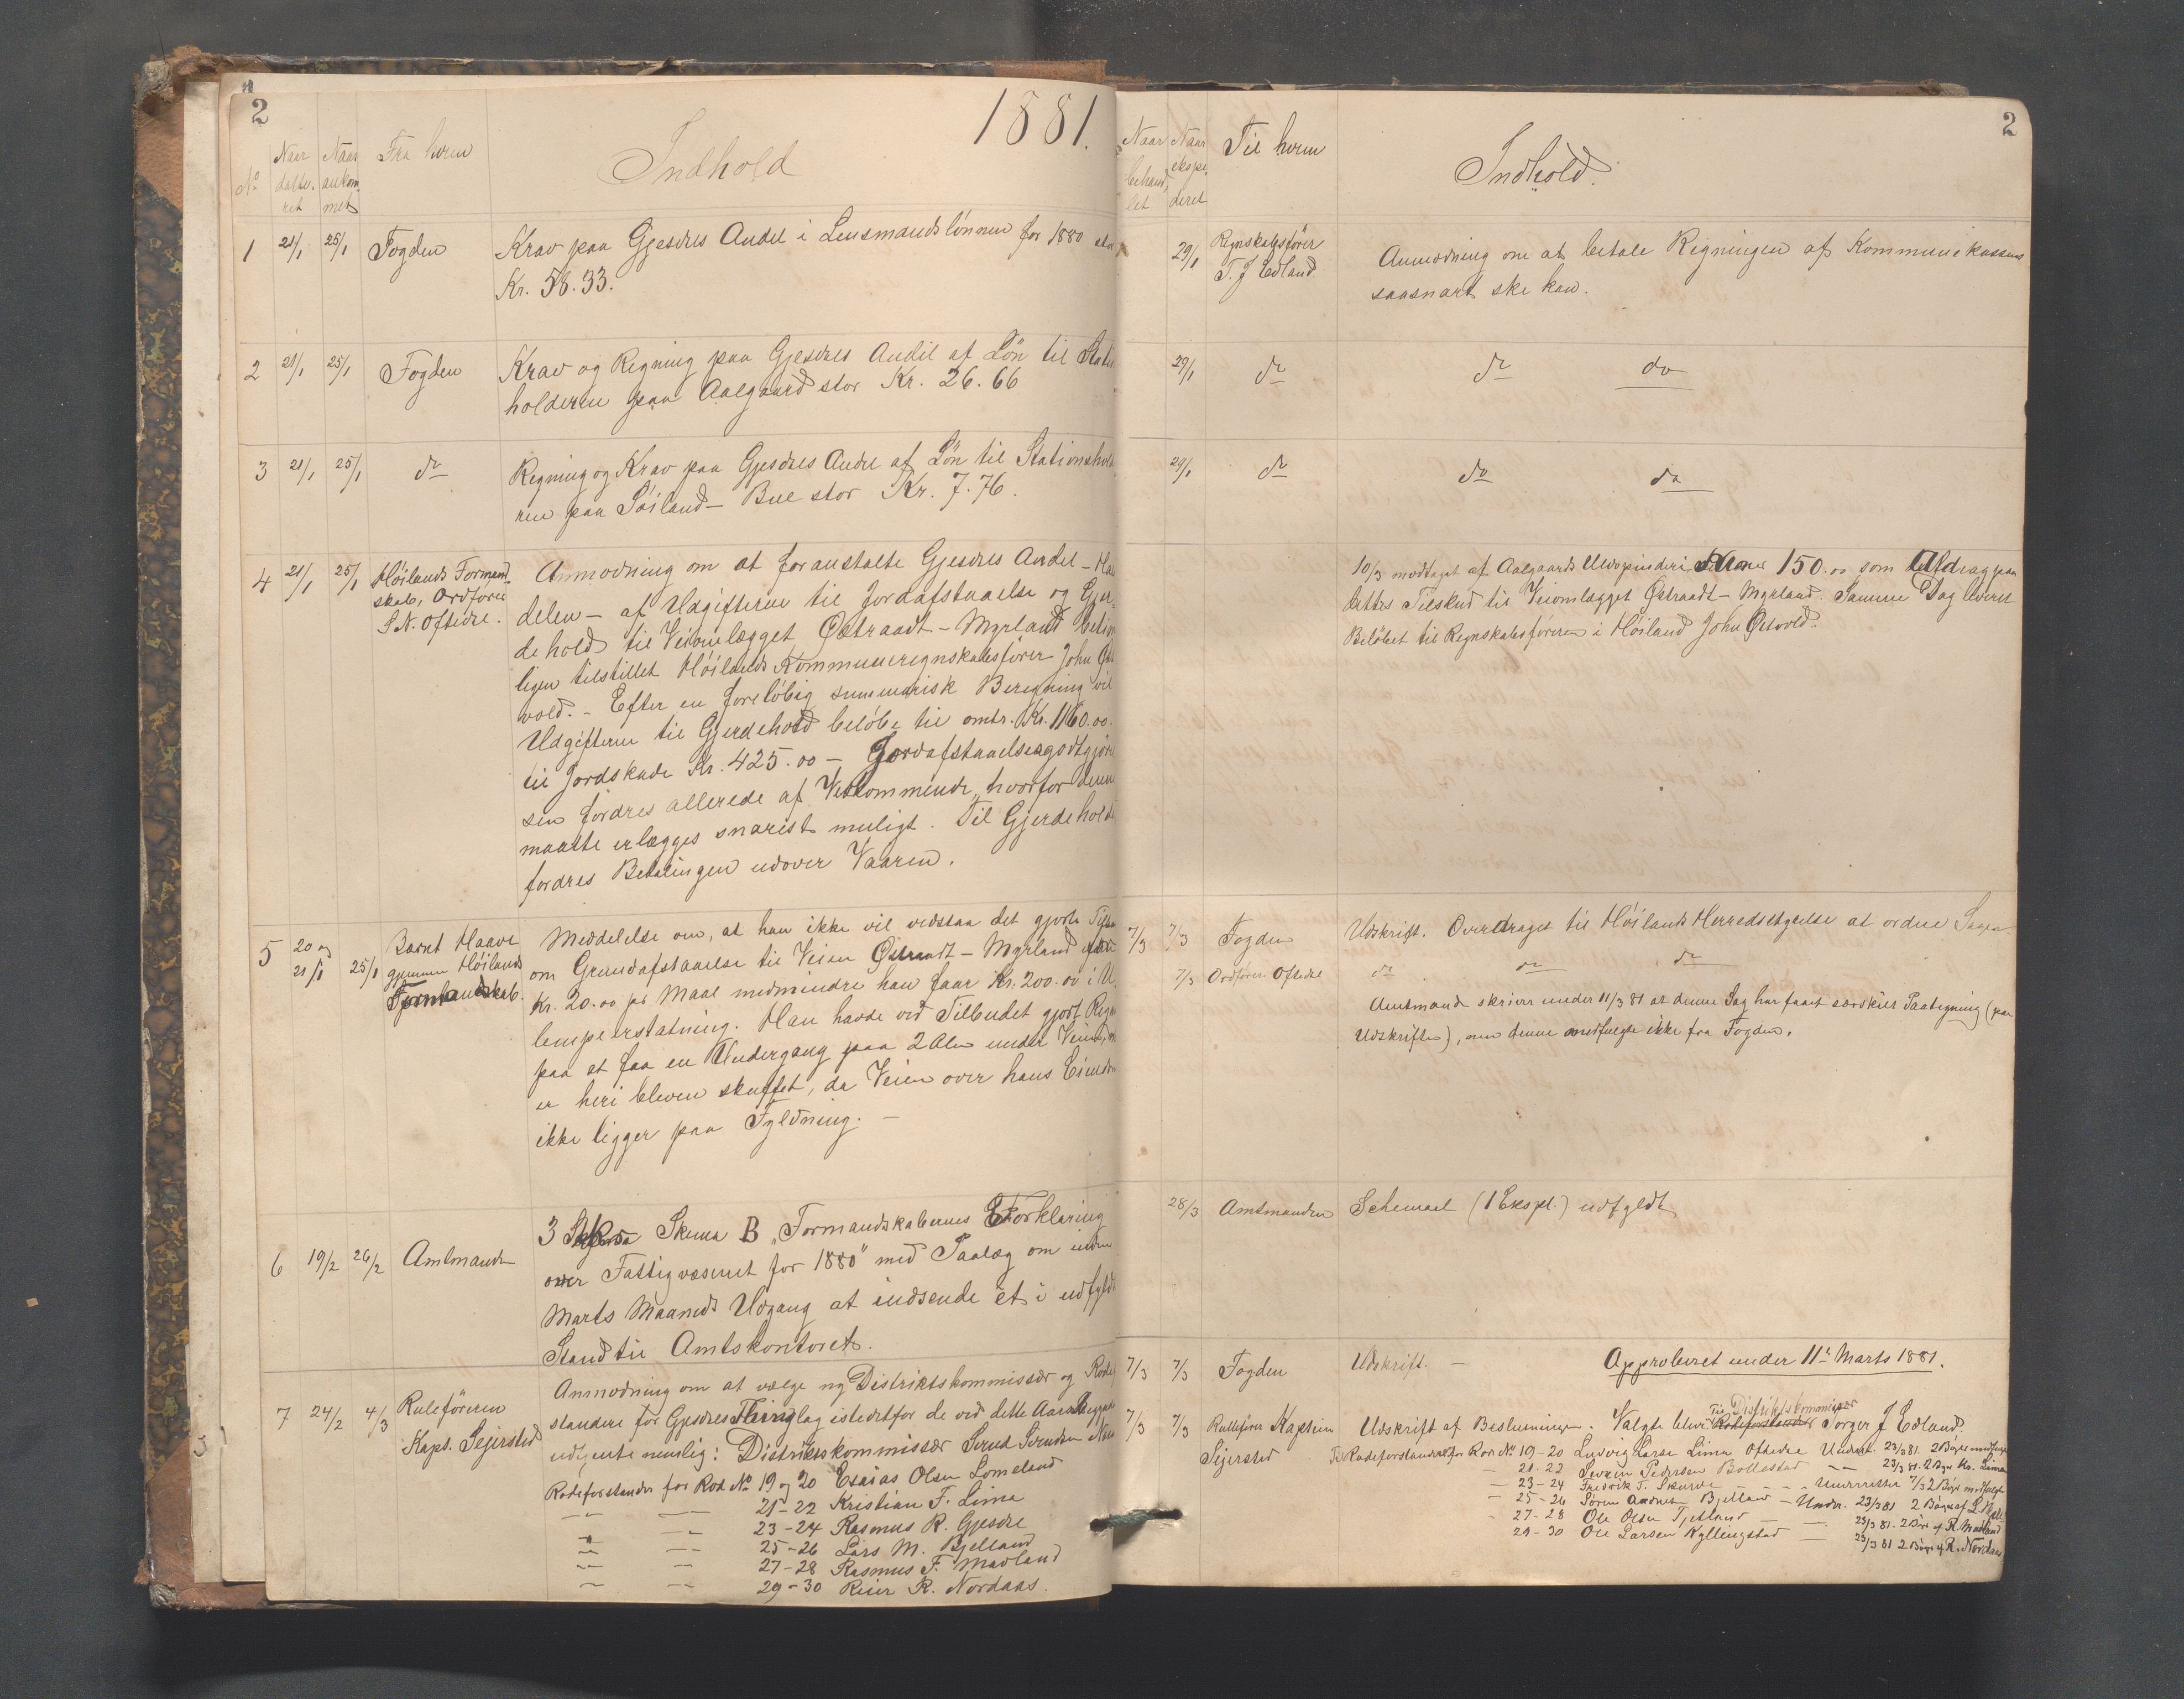 2
1881.
No
Naar datteret
Naar ankommet
Fra hvem
Indhold
1 21/1 25/1 Fogden Krav paa Gjesdals Andel i Lensmandslönnen for 1880 stor
Kr. 58.33.
2 21/1 25/1 Fogden Krav og Regning paa Gjesdals Andel af Lön til Stations
holderen paa Aalgaard stor Kr. 26.66
3 21/1 25/1 do Regning og Krav paa Gjesdals Andel af Lön til Stationshold
ren paa Söiland - Bue stor Kr. 7.76.
4 21/1 25/1 Höilands Formand
skab, Ordförer
S. N. Oftedal.
Anmodning om at foranstalte Gjesdals Andel - Hal
delen - af Udgifterne til Jordafstaaelse og Gjer
dehold til Veiomlægget Östraadt - Myrland betime
ligen tilstillet Höilands Kommuneregnskabsförer John Öst
vold. - Efter en forelöbig summarisk Beregning vil
Udgifterne til Gjerdehold belöbe til omtr. Kr. 1160.00.
til Jordskade Kr. 425.00 - Jordafstaaelsesgodtgjörel
sen fordres allerede af Vedkommende, hvorfor denne
maatte erlægges snarest muligt. Til Gjerdeholdet
fordres Betalingen udover Vaaren.
5 20 og
21/1 25/1 Barnt Haave
gjennem Höilands
Formandskab.
Meddelelse om, at han ikke vil vedstaa det gjorte Tilbud
om Grundafstaaelse til Veien Östraadt - Myrland
Kr. 20.00 pr Maal medmindre han faar Kr. 200.00 i U
lempeerstatning. Han havde ved Tilbudet gjort Regn
paa at faa en Undergang paa 2 Alen under Veien, m
er heri bleven skuffet, da Veien over hans Eiendom
ikke ligger paa Fyldning. -
6 19/2 26/2 Amtmanden
3 Skema B „Formandskabernes Forklaring
over Fattigvæsenet for 1880" med Paalæg om inden
Marts Maaneds Udgang at indsende èt i udfyldt
Stand til Amtskontoret.
7 24/2 4/3 Rulleföreren
Kapt. Sejersted
Anmodning om at vælge ny Distriktskommissær og Rodefor
standere for Gjesdals Thinglag istedetfor de ved dette Aars Begynd
udgaaende nemlig: Distriktskommissær Svend Svendsen
Rodeforstander for Rod No 19 og 20 Esaias Olsen Lomeland
21-22 Kristian F. Lima
23-24 Rasmus R. Gjesdal
25-26 Lars M. Bjelland
27-28 Rasmus F. Madland
29-30 Reier R. Nordaas.
2
Naar behandlet
Naar ekspederet
Til hvem
Indhold.
29/1 Regnskabsförer
T. J. Edland
Anmodning om at betale Regningen af Kommunekassen
saasnart ske kan.
29/1 do do do
29/1 do do do
10/3 modtaget af Aalgaards Uldspinderi Kroner 150.00 som Afdrag paa
dettes Tilskud til Veiomlægget Östraadt - Myrland. Samme Dag leveret
Belöbet til Regnskabsföreren i Höiland John Östvold.
7/3 7/3 Fogden Udskrift. Overdraget til Höilands Herredsstyrelse at ordne Sagen
7/3 Ordförer Oftedal do do do
Amtmand skriver under 11/3 81 at denne Sag har faaet særskilt Paategning (paa
Udskriften), men denne medfulgte ikke fra Fogden.
28/3 Amtmanden Schemaet (1 Ekspl.) udfyldt
7/3 7/3 Fogden Udskrift. - Approberet under 11te Marts 1881.
7/3 7/3 Rulleförer Kaptein
Sejersted
Til Distriktskommissær
Udskrift af Beslutningen. Valgte blev Rodeforstander Torger J Edland.
Til Rodeforstandere for Rod No 19-20 Ludvig Larsen Lima Oftedal Underr. 23/3 81. 2 Böger medfulgte
21-22 Svein Pedersen Bollestad 23/3 81. 2 Böger Kr. Lima
23-24 Fredrik T. Skurve Underrettet 7/3 2 Böger medfulgte
25-26 Sören Andreas Bjelland - Underr. 23/3 81 2 Böger af L. Bjell.
27-28 Ole Olsen Tjetland 23/3 81. 2 Böger af R. Madland
29-30 Ole Larsen Kyllingstad 23/3 81 2 Böger af R. Nordaas